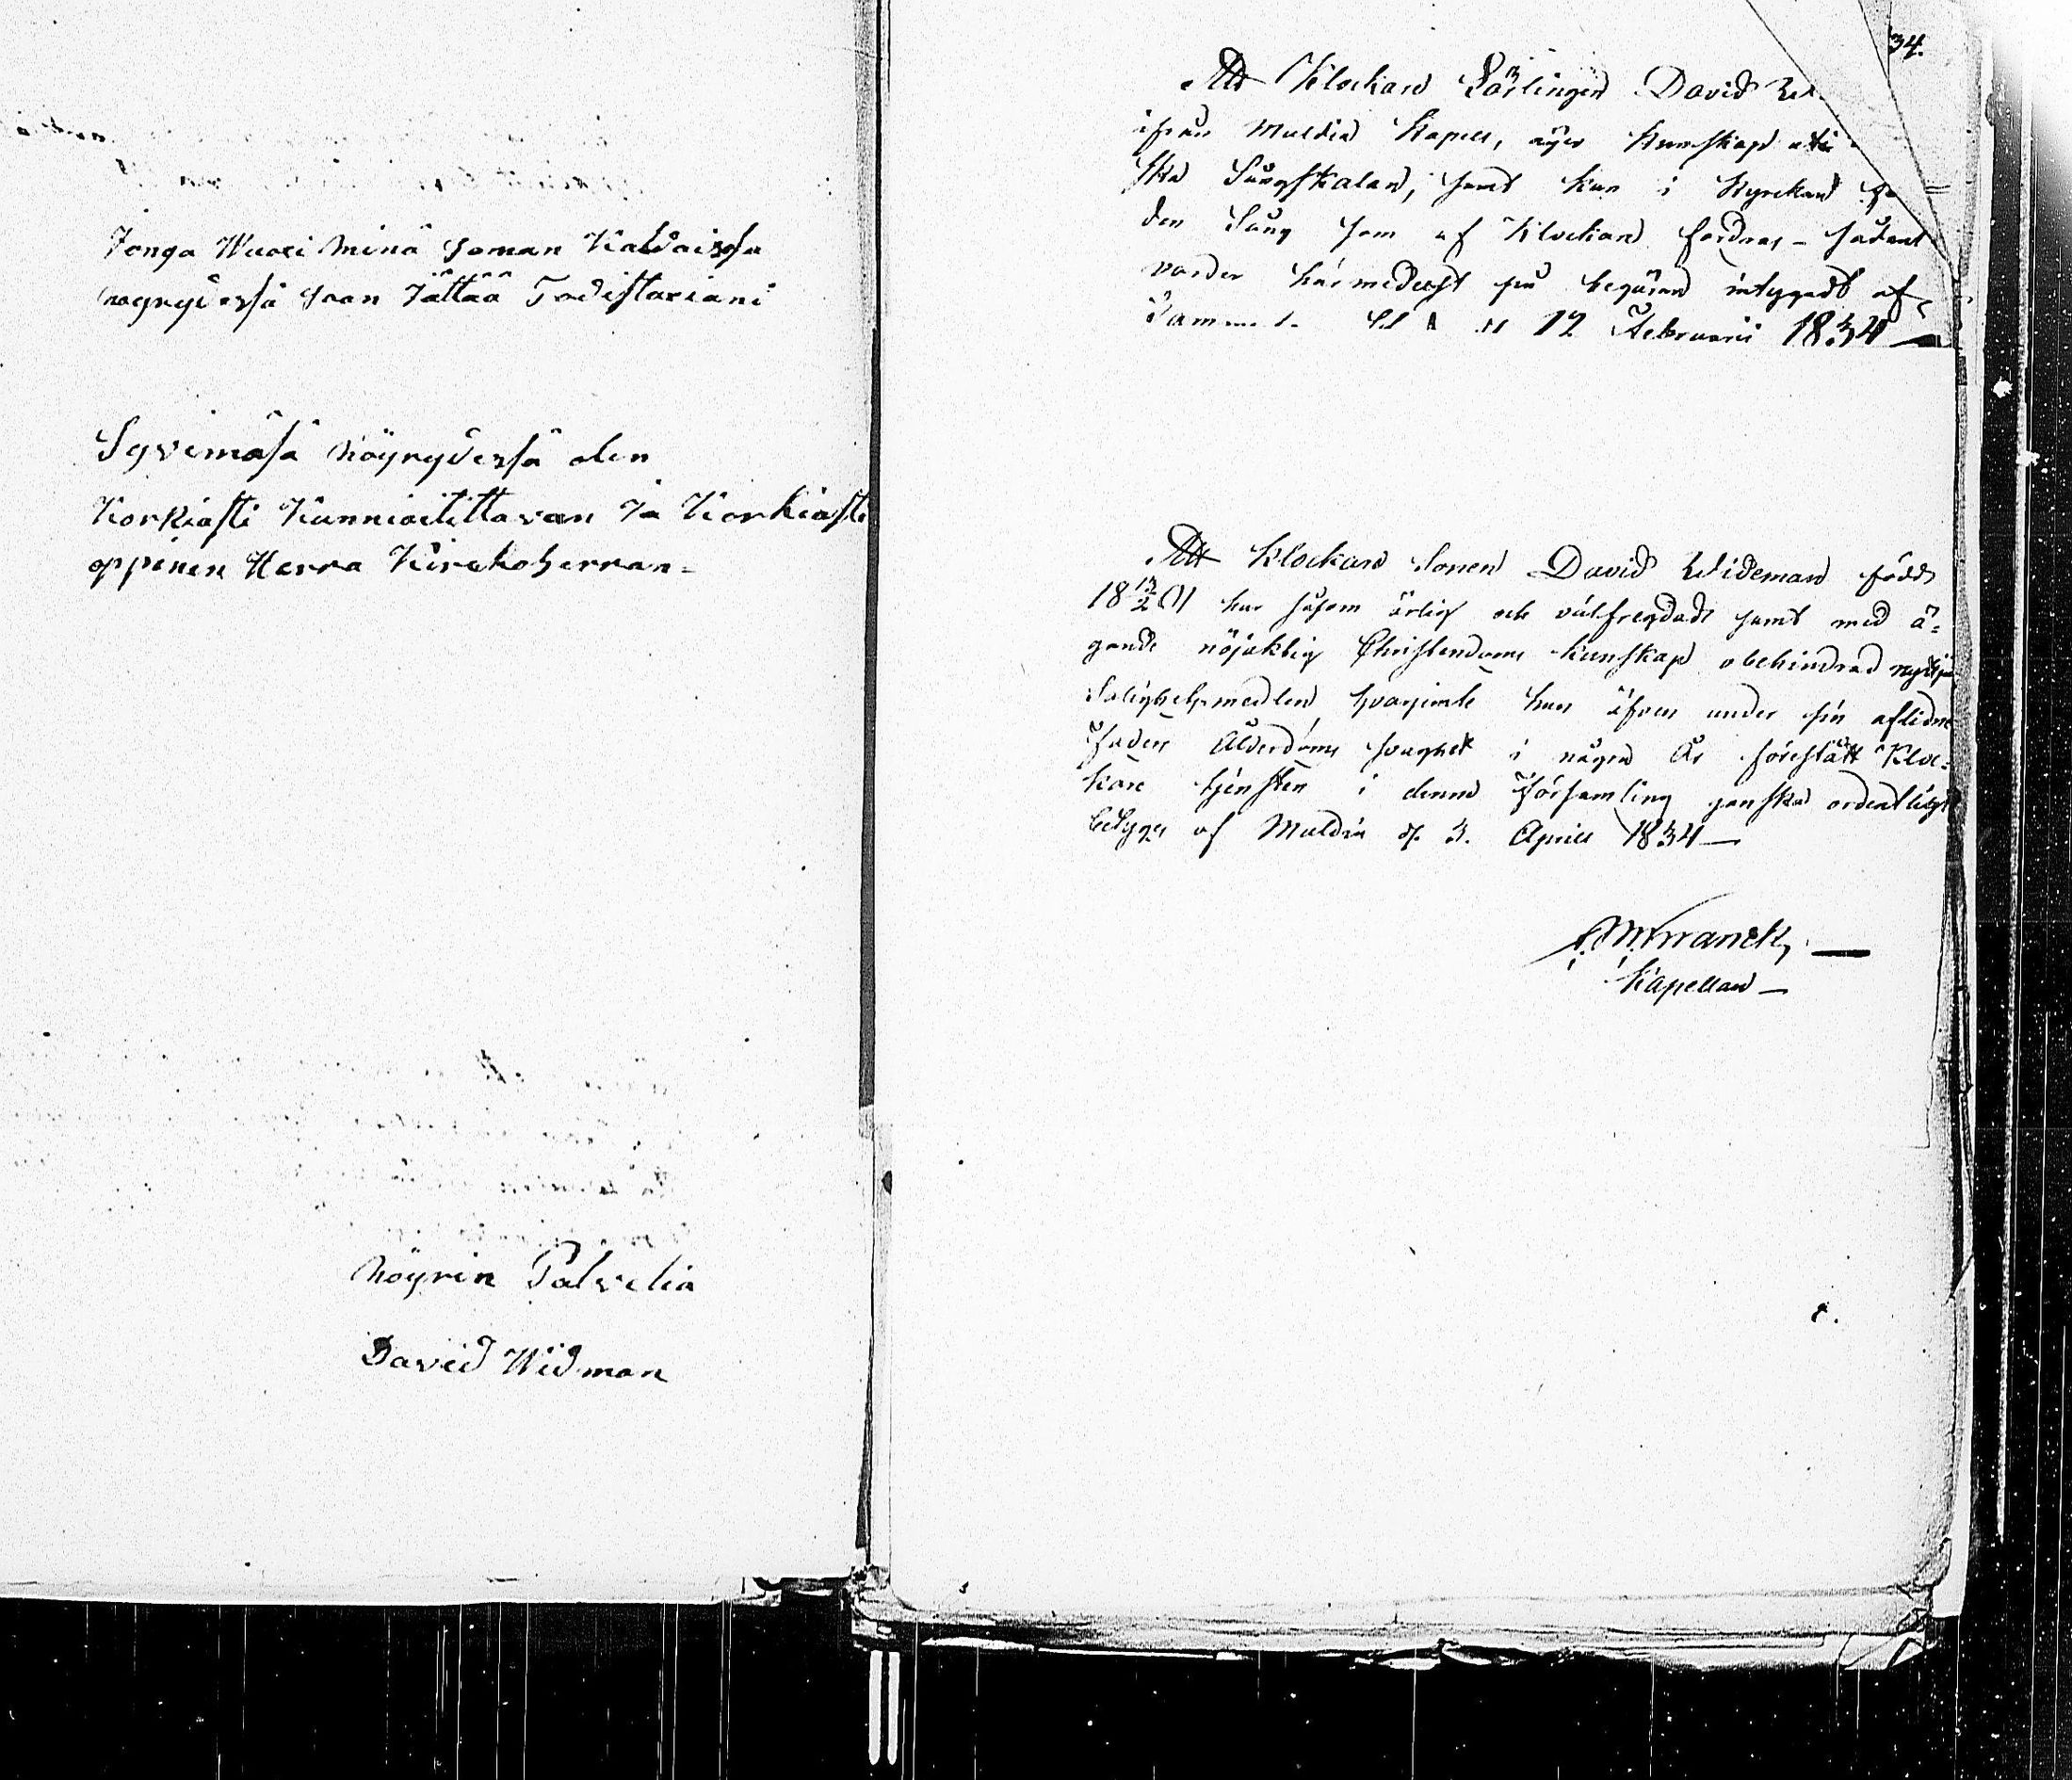 Jonga Wuoxi minä saman Kaldaisssa
nöyrydessä saan Jättää Todistaxiani
Syvimäsä nöyrydessä olen
Korkiasti Kunnioititta van Ja Korkiasti
oppinen Herra Kirckoherran=
nöyrin Palvelia
David Widman
34.
Att Klockare Lärlingen David
ifrån Muldia Kapell, äger kunskap uti
ska Sångskalan, samt kan i Kyrckan
den Sång som af Klockare fordras - sådant
varder härmedelst på begäran intygadt af
12 Februarii 1834
Att Klockare Sonen David Wideman född
18 13/2 01 har såsom ärlig och välfregdad samt med ä=
gande nöjaktig Christendoms kunskap obehindrad nyttja
Salighetsmedlen, hvarjemte han äfven under sin aflidne
Faders Ålderdoms svaghet i några År förestått Kloc=
kare tjensten i denna Församling ganska ordentligt
betygas af Muldia d. 3. Aprill 1834
Kapellan